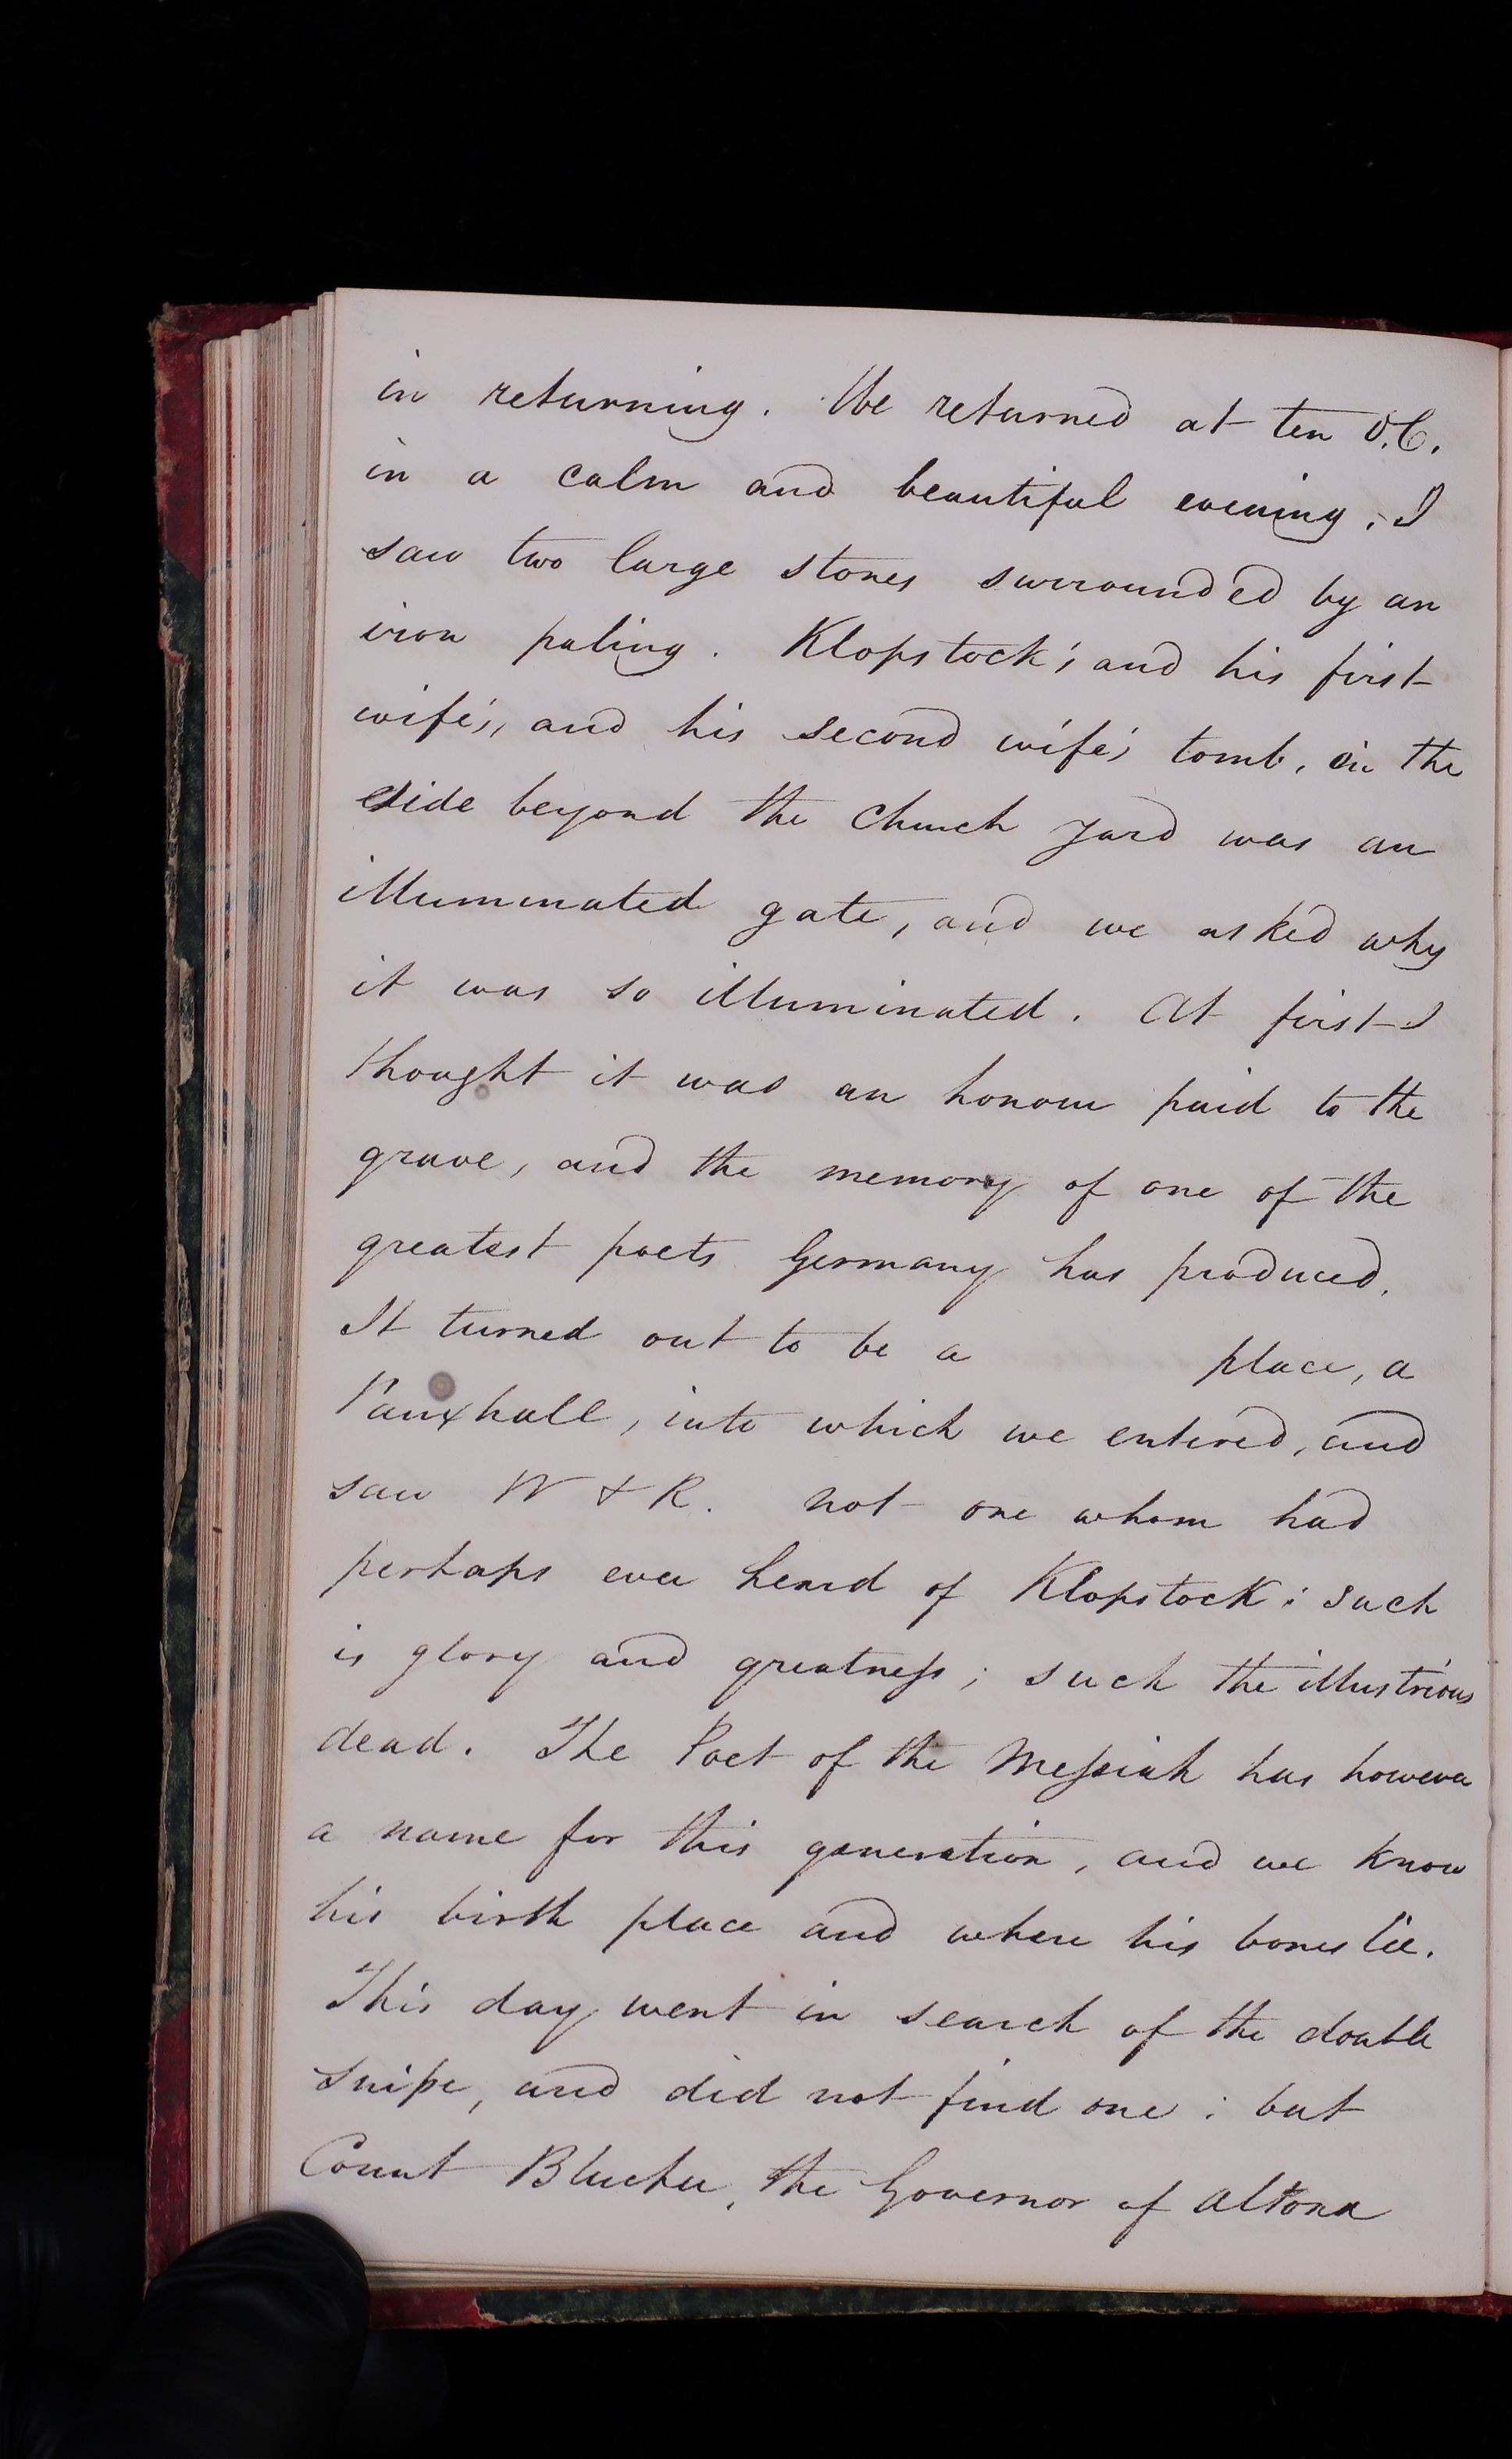 in returning. We returned at ten O.C.
in a calm and beautiful evening. I
saw two large stones surrounded by an
iron paling. Klopstock's and his first
wife's, and his second wife's tomb, in the
side beyond the Church Yard was an
illuminated gate, and we asked why
it was so illuminated. At first I
thought it was an honour paid to the
grave, and the memory of one of the
greatest poets Germany has produced.
It turned out to be a place, a
Vauxhall, into which we entered, and
saw W & R. not one whom had
perhaps ever heard of Klopstock: such
is glory and greatness; such the illustrious
dead. The Poet of the Messiah has however
a name for this generation, and we know
his birth place and where his bones lie.
This day went in search of the double
snipe, and did not find one: but
Count Blucher, the Governor of Altona